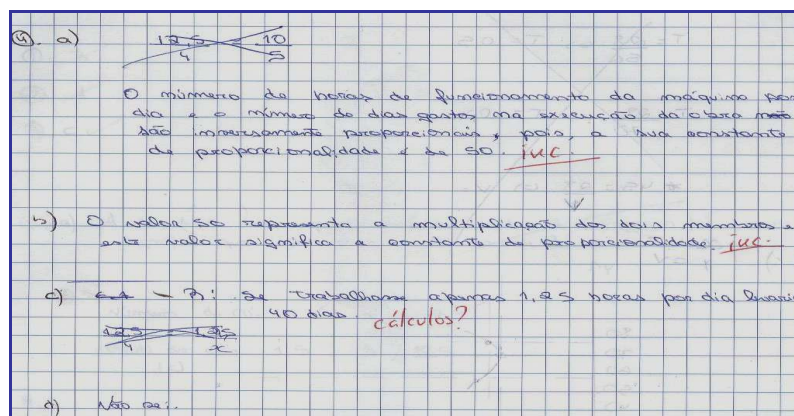 4. a) 12,5 10
4 5
O número de horas de funcionamento da máquina por
dia e o número de dias gastos na execução da obra não
são inversamente proporcionais, pois, a sua constante
de proporcionalidade é de 50. inc.
b) O valor 50 representa a multiplicação dos dois membros e
este valor significa a constante de proporcionalidade. inc.
c) - R: Se trabalhasse apenas 1,25 horas por dia
40 dias. cálculos?
12,5 1,25
4 x
d) Não sei.